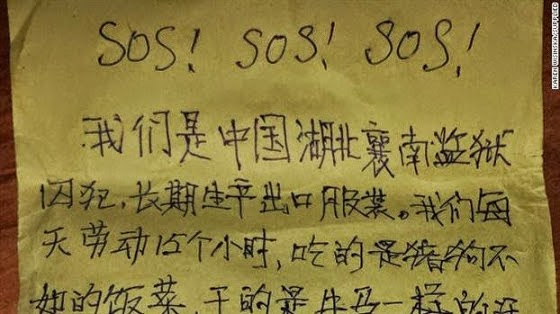 SOS! SOS! SOS!
我们是中国湖北襄南监狱
囚犯,长期生产出口服装。我们每
天劳动15个小时,吃的是猪狗不
的饭菜,干的是牛马一样的
KAREN WISINSKA/SUPPLIED